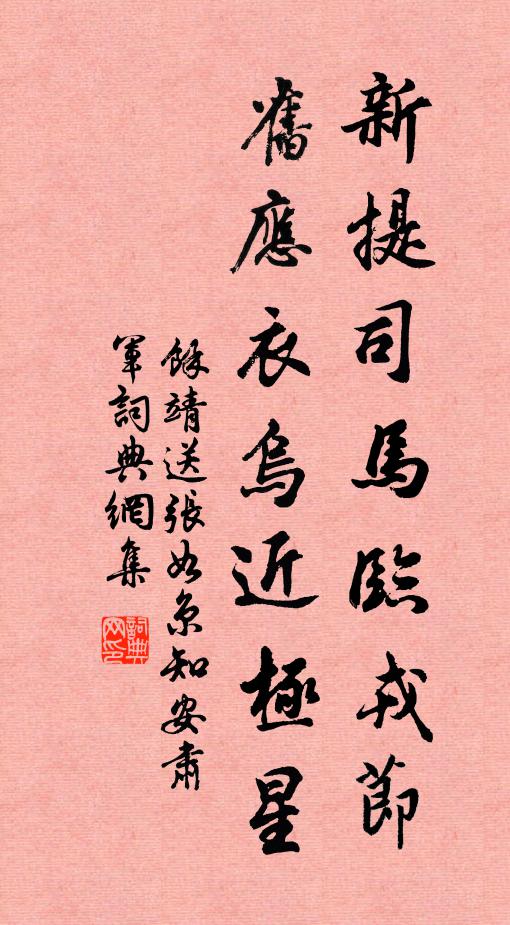 新提司馬臨戎節
舊應衣烏近極星
餘靖送張如京知安肅
軍詞典網集
詞典网印